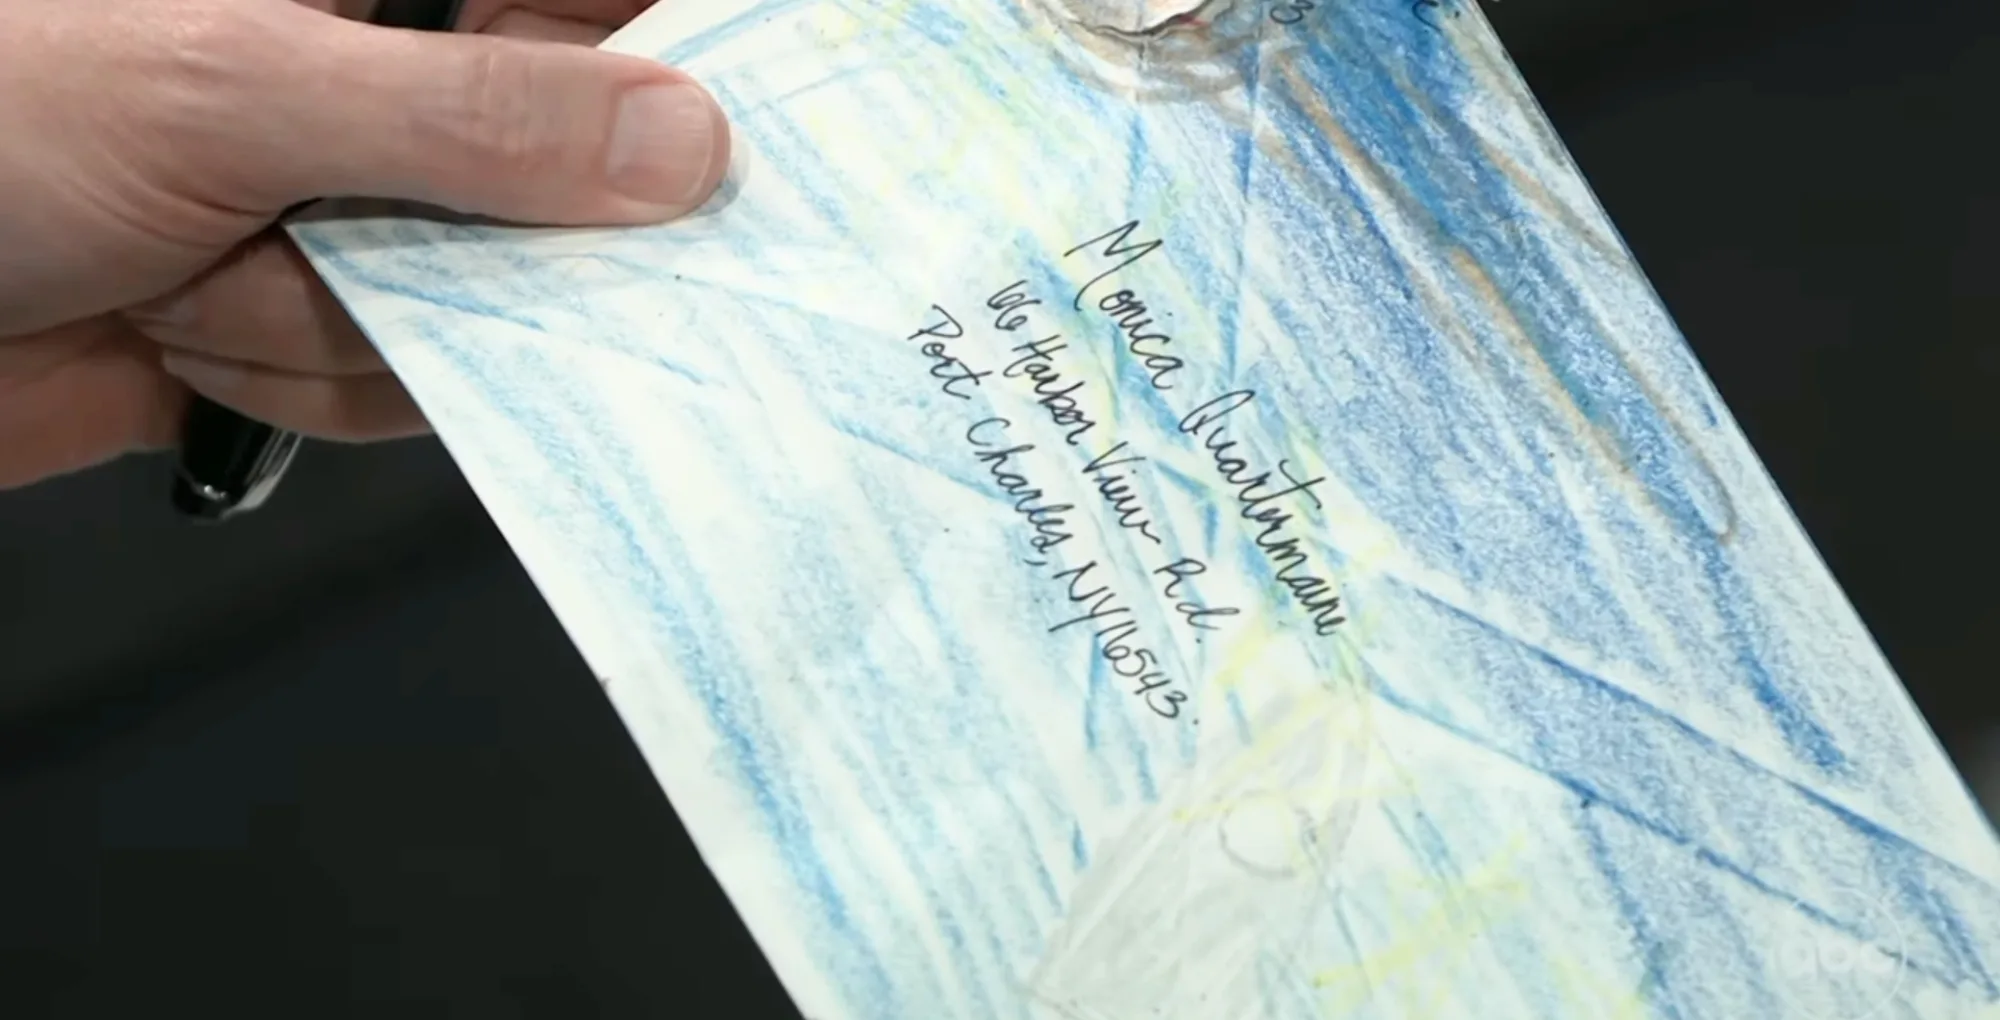 3
Monica Quartermaine
66 Harbor View Rd.
Port Charles, NY 16543.
abc